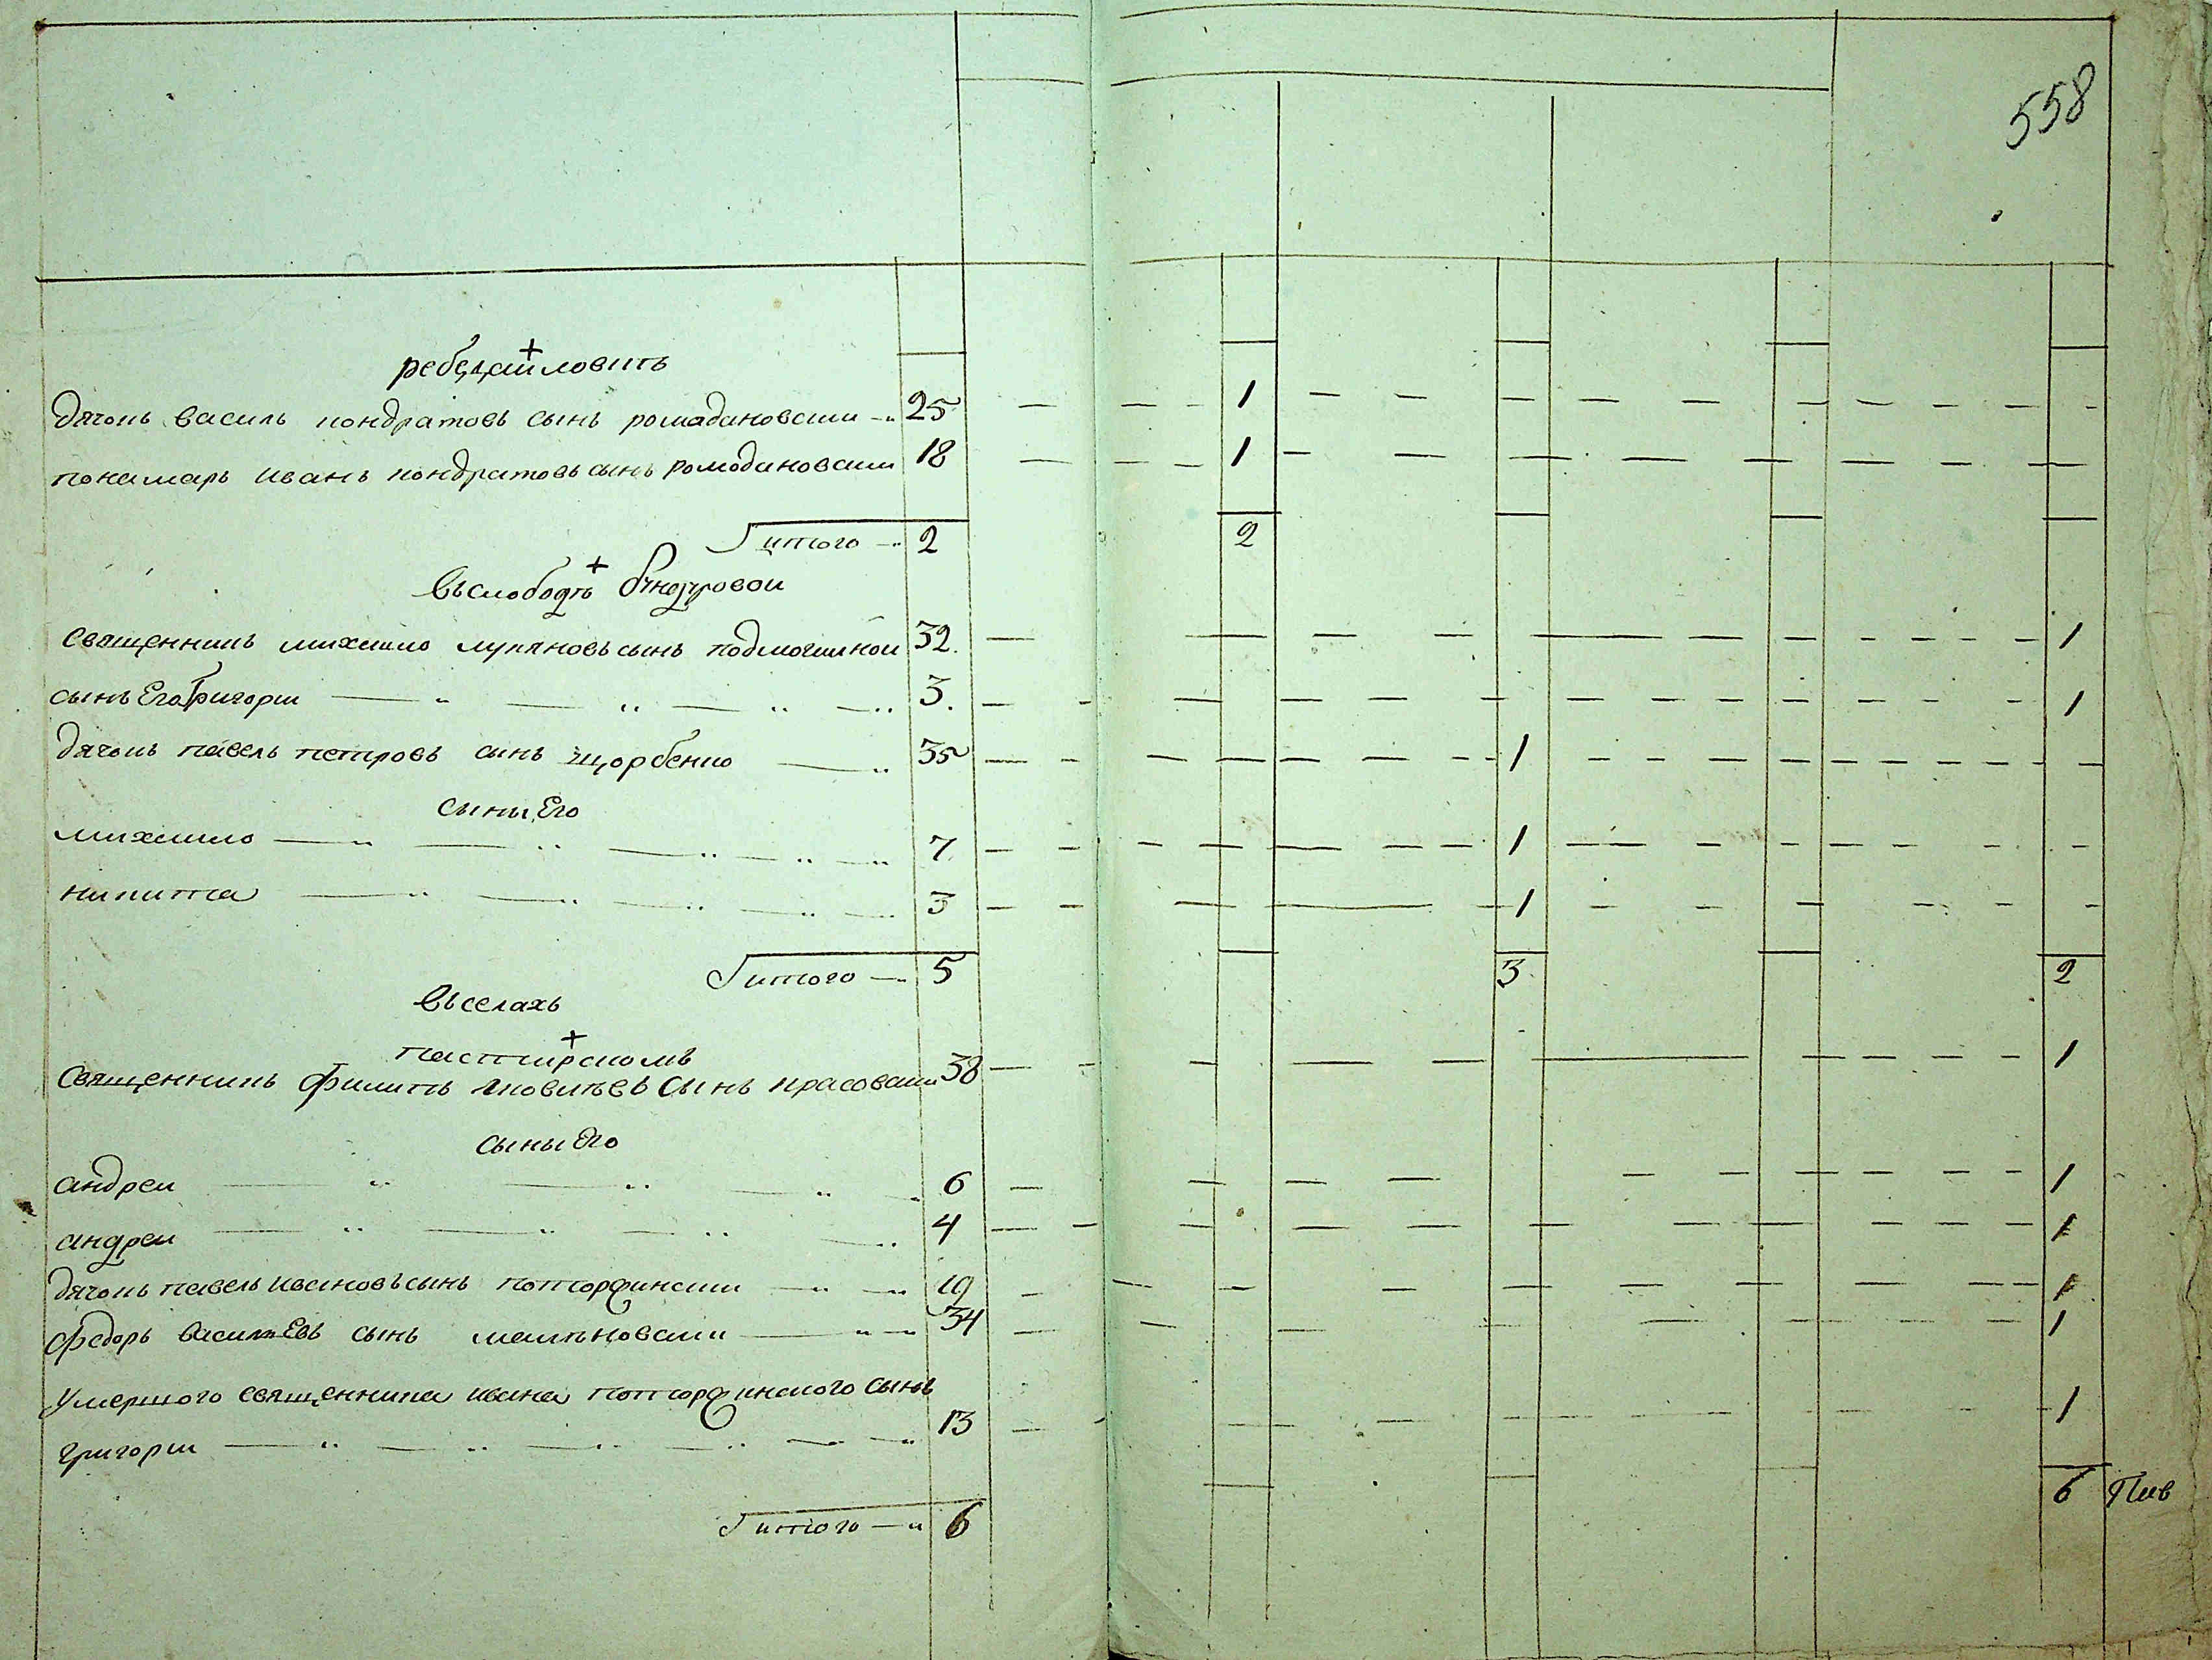 558
ребедаиловить
дячокъ василь кондратовъ сынъ ромадановскии 25 1
понамарь иванъ кондратовъ сынъ ромодановскии 18 1
итого 2 2
въслободѣ бундуровои
священникъ михаило лукяновъ сынъ подмогилнои 32. 1
сынъ Его григории 3. 1
дячокъ павелъ петровъ сынъ щорбенко 35 1
сыны Его
михаило 7 1
никита 3 1
итого 5 3 2
въселахъ
пастирскомъ
священникъ филипъ яковлевъ сынъ красовскии 38 1
сыны Его
андреи 6 1
андреи 4 1
дячокъ павелъ ивановъ сынъ потоцфинскии 19 1
федоръ василиевъ сынъ 34 1
умершого священника ивана сынъ
григории 13 1
итого 6 6